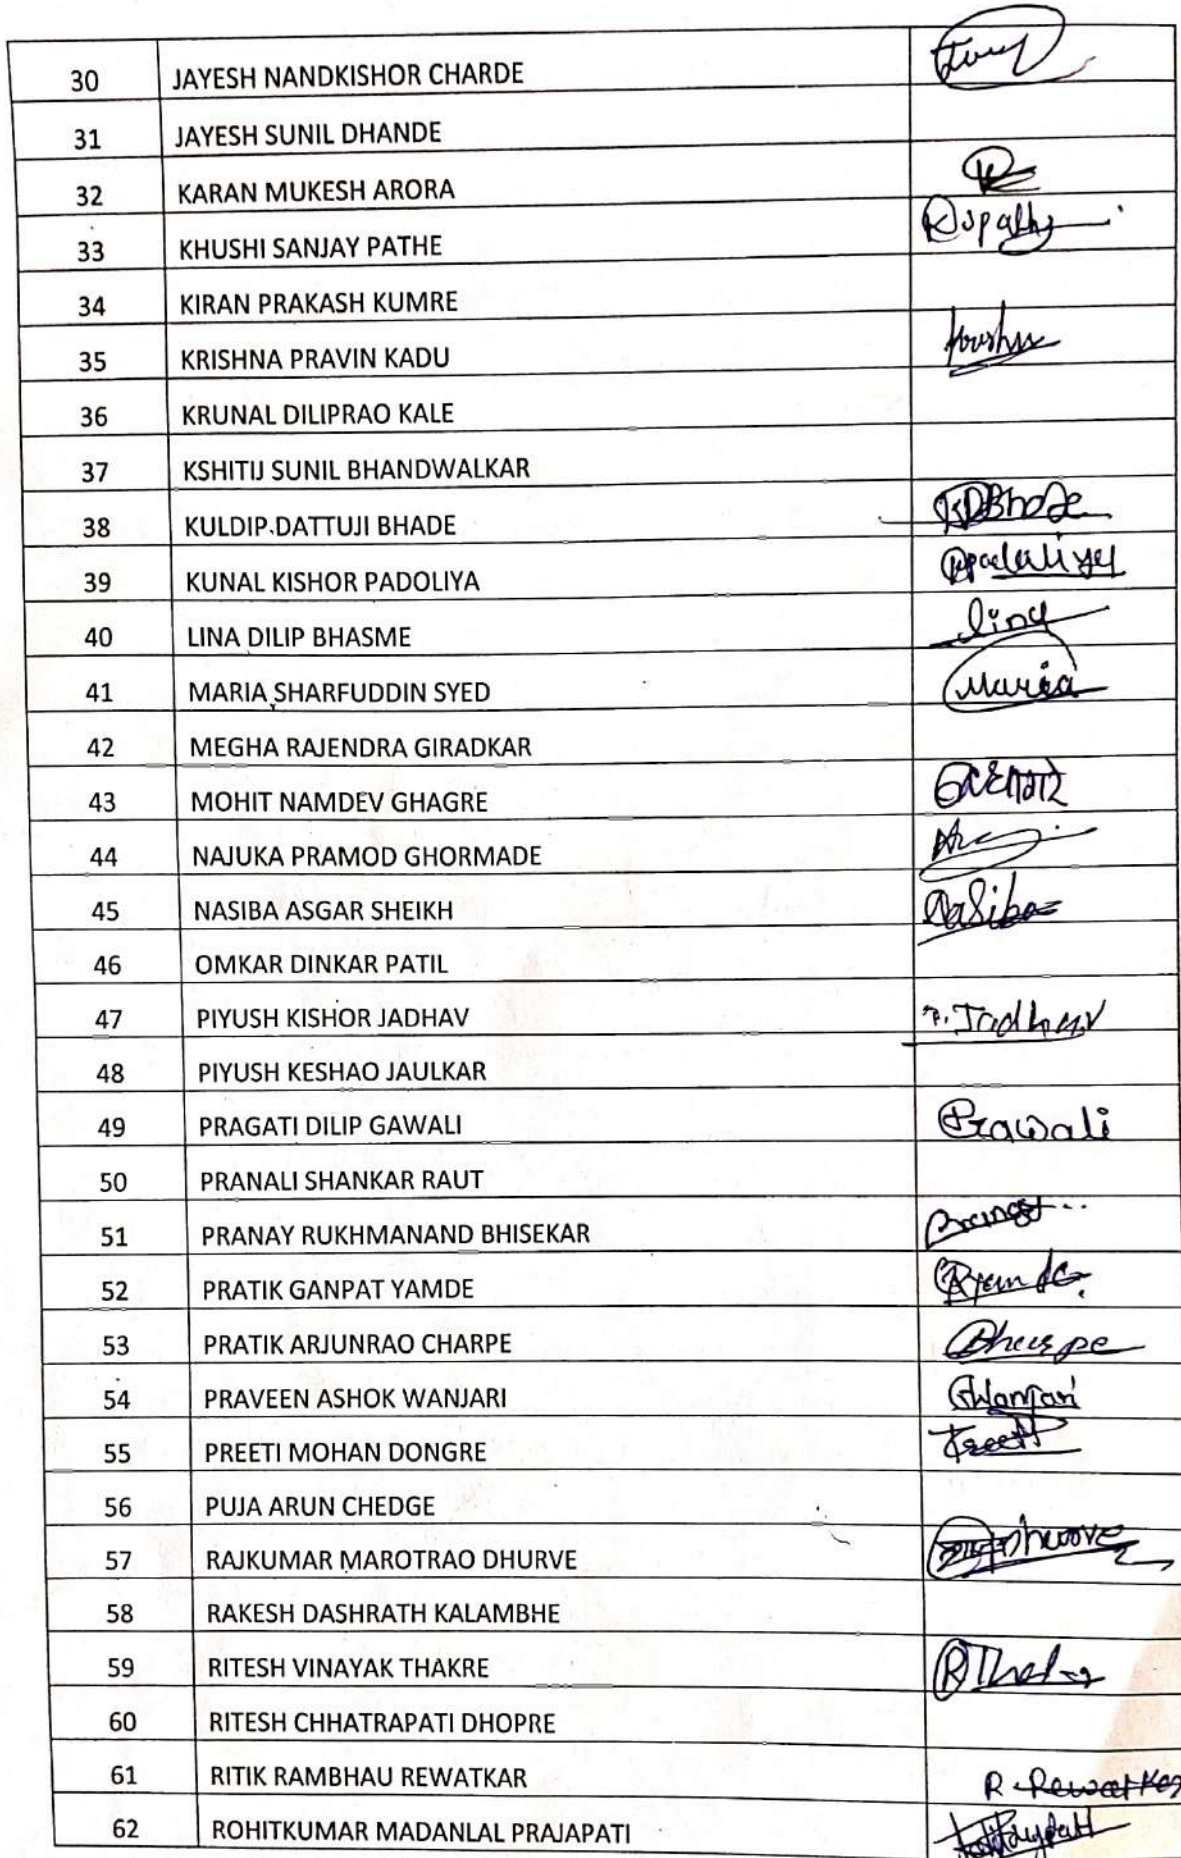 30 JAYESH NANDKISHOR CHARDE
31 JAYESH SUNIL DHANDE
32 KARAN MUKESH ARORA
33 KHUSHI SANJAY PATHE
34 KIRAN PRAKASH KUMRE
35 KRISHNA PRAVIN KADU
36 KRUNAL DILIPRAO KALE
37 KSHITIJ SUNIL BHANDWALKAR
38 KULDIP DATTUJI BHADE KDBhade
39 KUNAL KISHOR PADOLIYA
40 LINA DILIP BHASME Lina
41 MARIA SHARFUDDIN SYED Maria
42 MEGHA RAJENDRA GIRADKAR
43 MOHIT NAMDEV GHAGRE
44 NAJUKA PRAMOD GHORMADE
45 NASIBA ASGAR SHEIKH Nasiba
46 OMKAR DINKAR PATIL
47 PIYUSH KISHOR JADHAV P. Jadhav
48 PIYUSH KESHAO JAULKAR
49 PRAGATI DILIP GAWALI Pgawali
50 PRANALI SHANKAR RAUT
51 PRANAY RUKHMANAND BHISEKAR
52 PRATIK GANPAT YAMDE
53 PRATIK ARJUNRAO CHARPE
54 PRAVEEN ASHOK WANJARI PWanjari
55 PREETI MOHAN DONGRE Preeti
56 PUJA ARUN CHEDGE
57 RAJKUMAR MAROTRAO DHURVE
58 RAKESH DASHRATH KALAMBHE
59 RITESH VINAYAK THAKRE
60 RITESH CHHATRAPATI DHOPRE
61 RITIK RAMBHAU REWATKAR R. Rewatkar
62 ROHITKUMAR MADANLAL PRAJAPATI